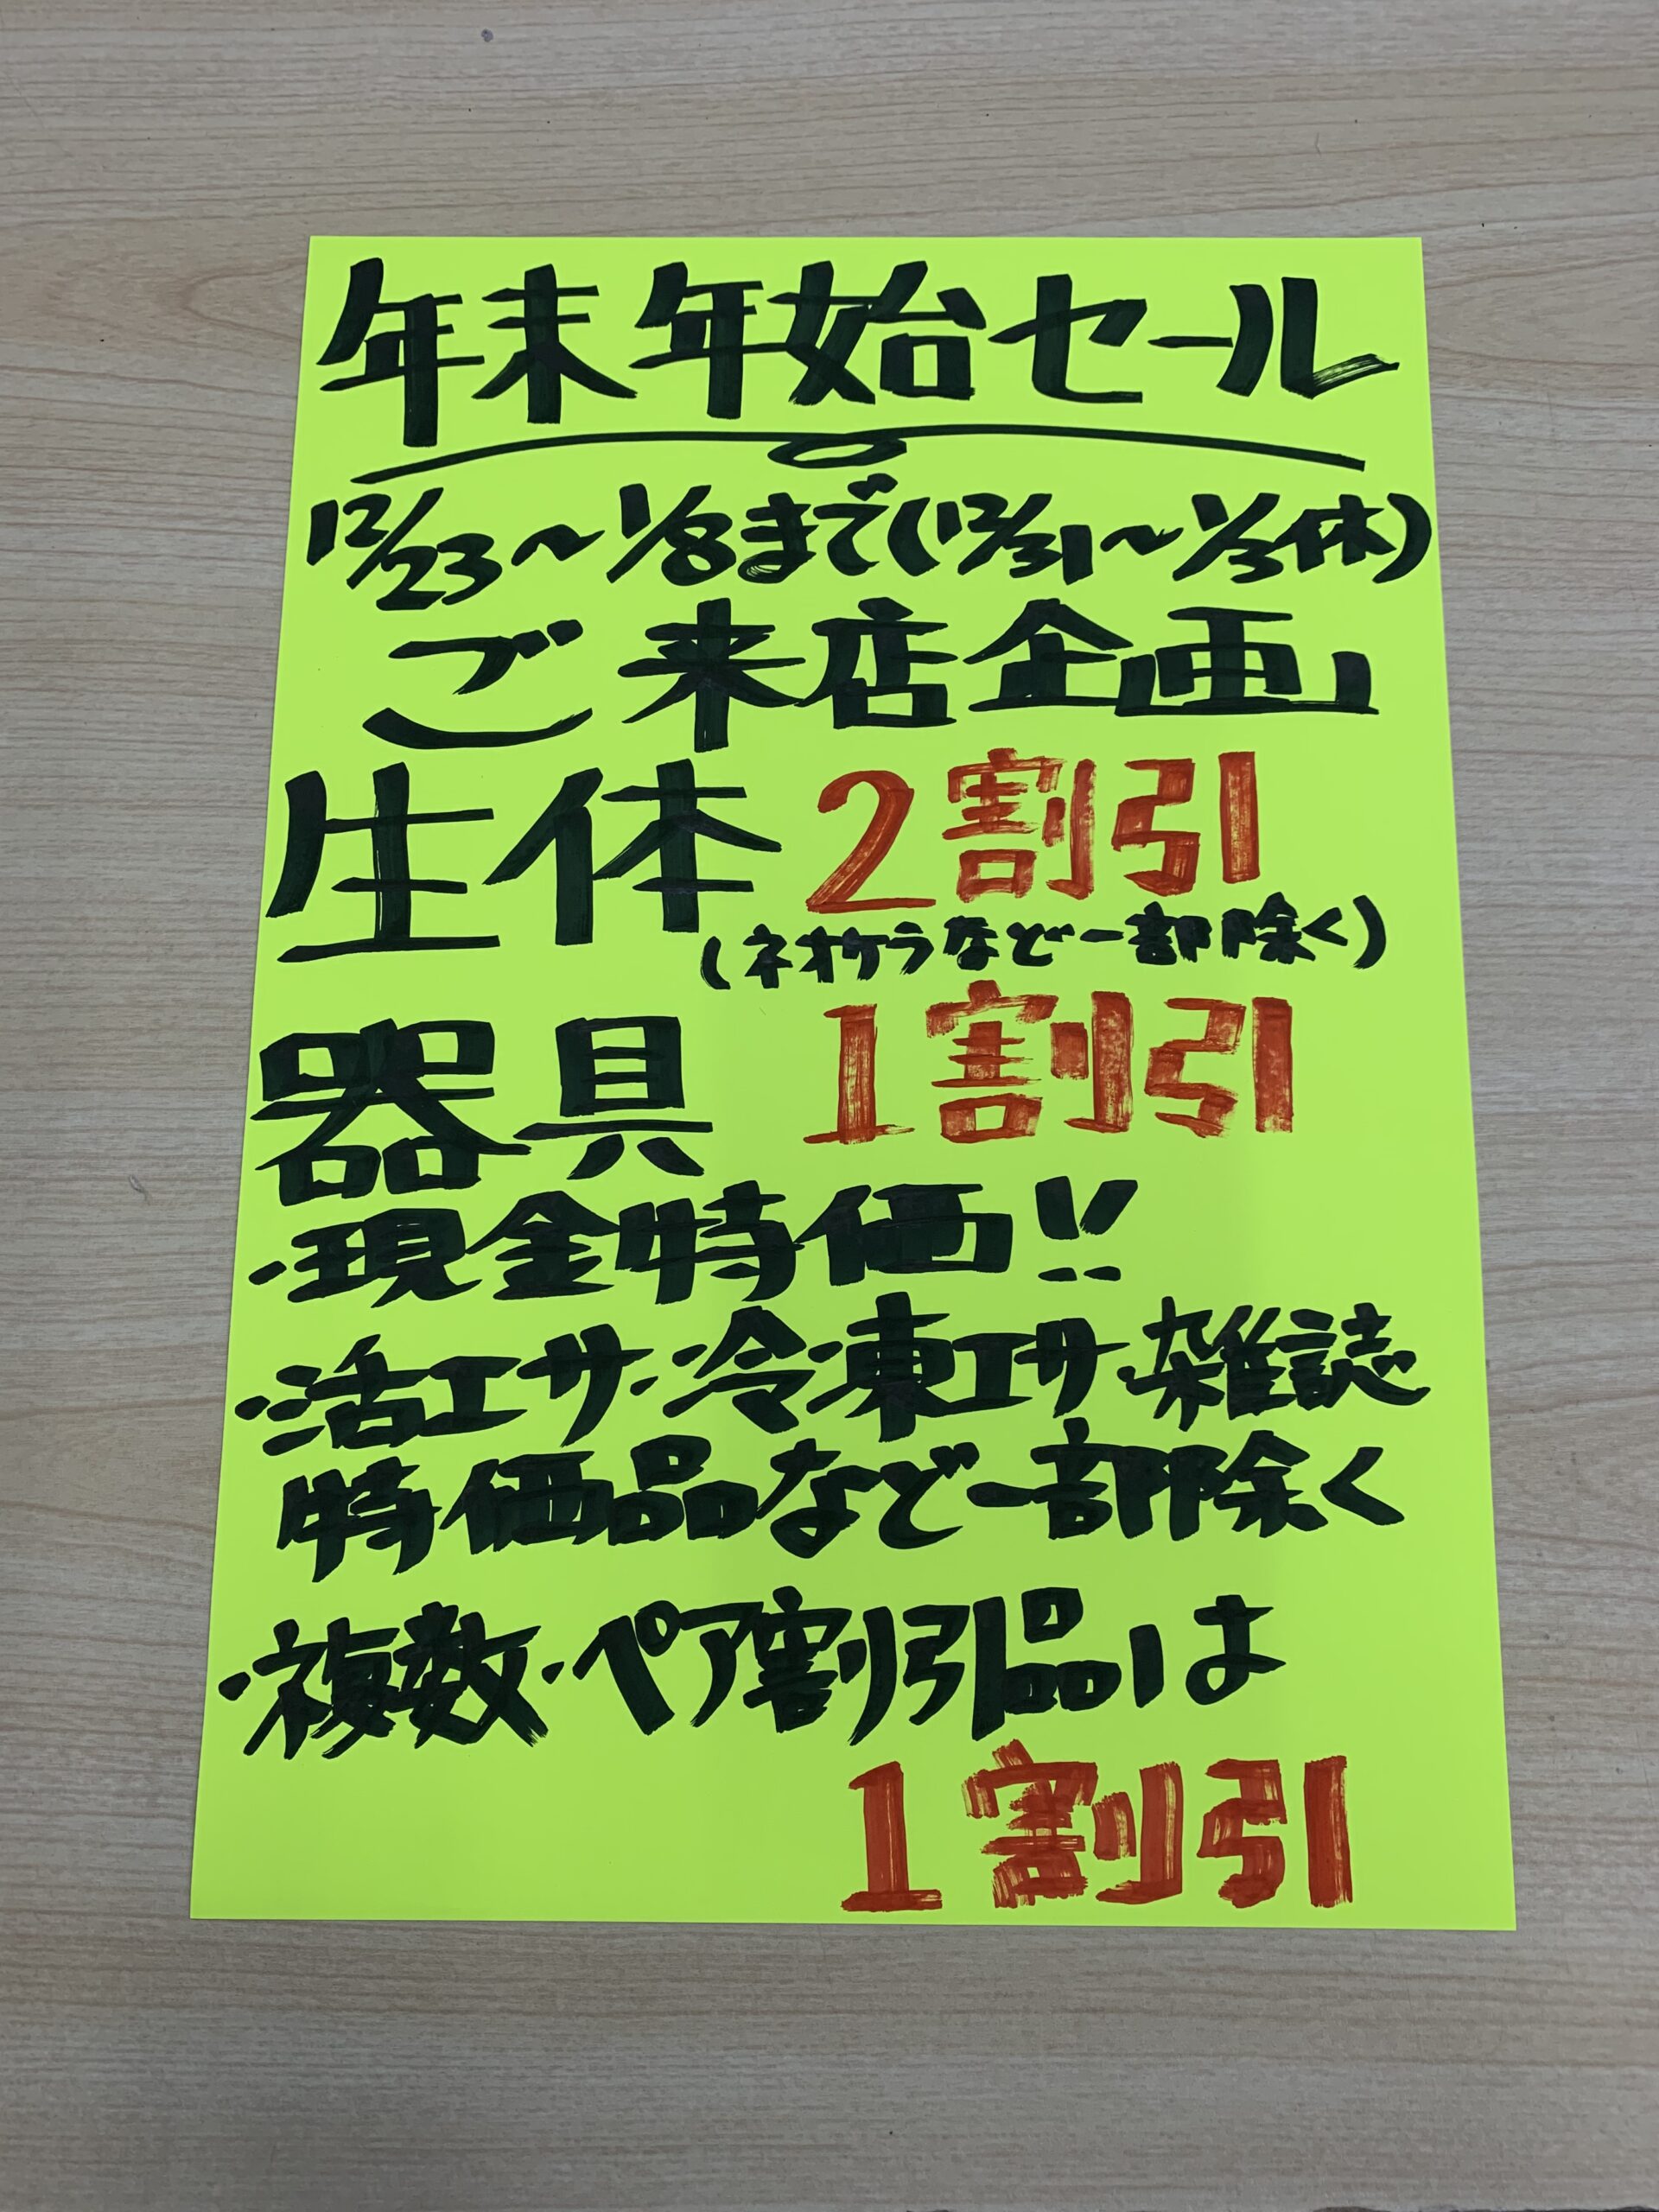 年末年始セール
12/23~1/8まで(12/31~1/3休)
ご来店企画
生体 2割引
(ネオケラなど一部除く)
器具 1割引
・現金特価!!
・活エサ・冷凍エサ・雑誌
特価品など一部除く
・複数・ペア割引品は
1割引